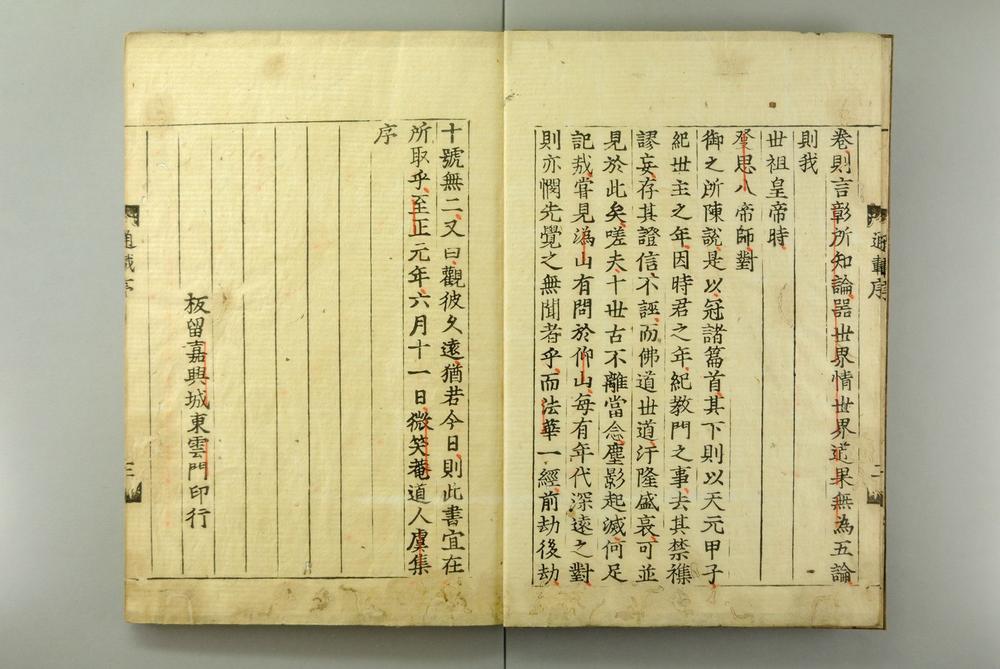 卷則言彰所知論器世界情世界道果無為五論
則我
世祖皇帝時
發思八帝師對
御之所陳說是以冠諸篇首其下則以天元甲子
紀世主之年因時君之年紀教門之事去其禁襍
謬妄存其證信不誣而佛道世道汙隆盛衰可並
見於此矣嗟夫十世古不離當念塵影起滅何足
記哉嘗見溈山有問於仰山每有年代深遠之對
則亦憫先覺之無聞者乎而法華一經前劫後劫
十號無二又曰觀彼久遠猶若今日則此書宜在
所取乎至正元年六月十一日微笑菴道人虞集
序
板留嘉興城東雲門印行
通載序
二
通載序
三